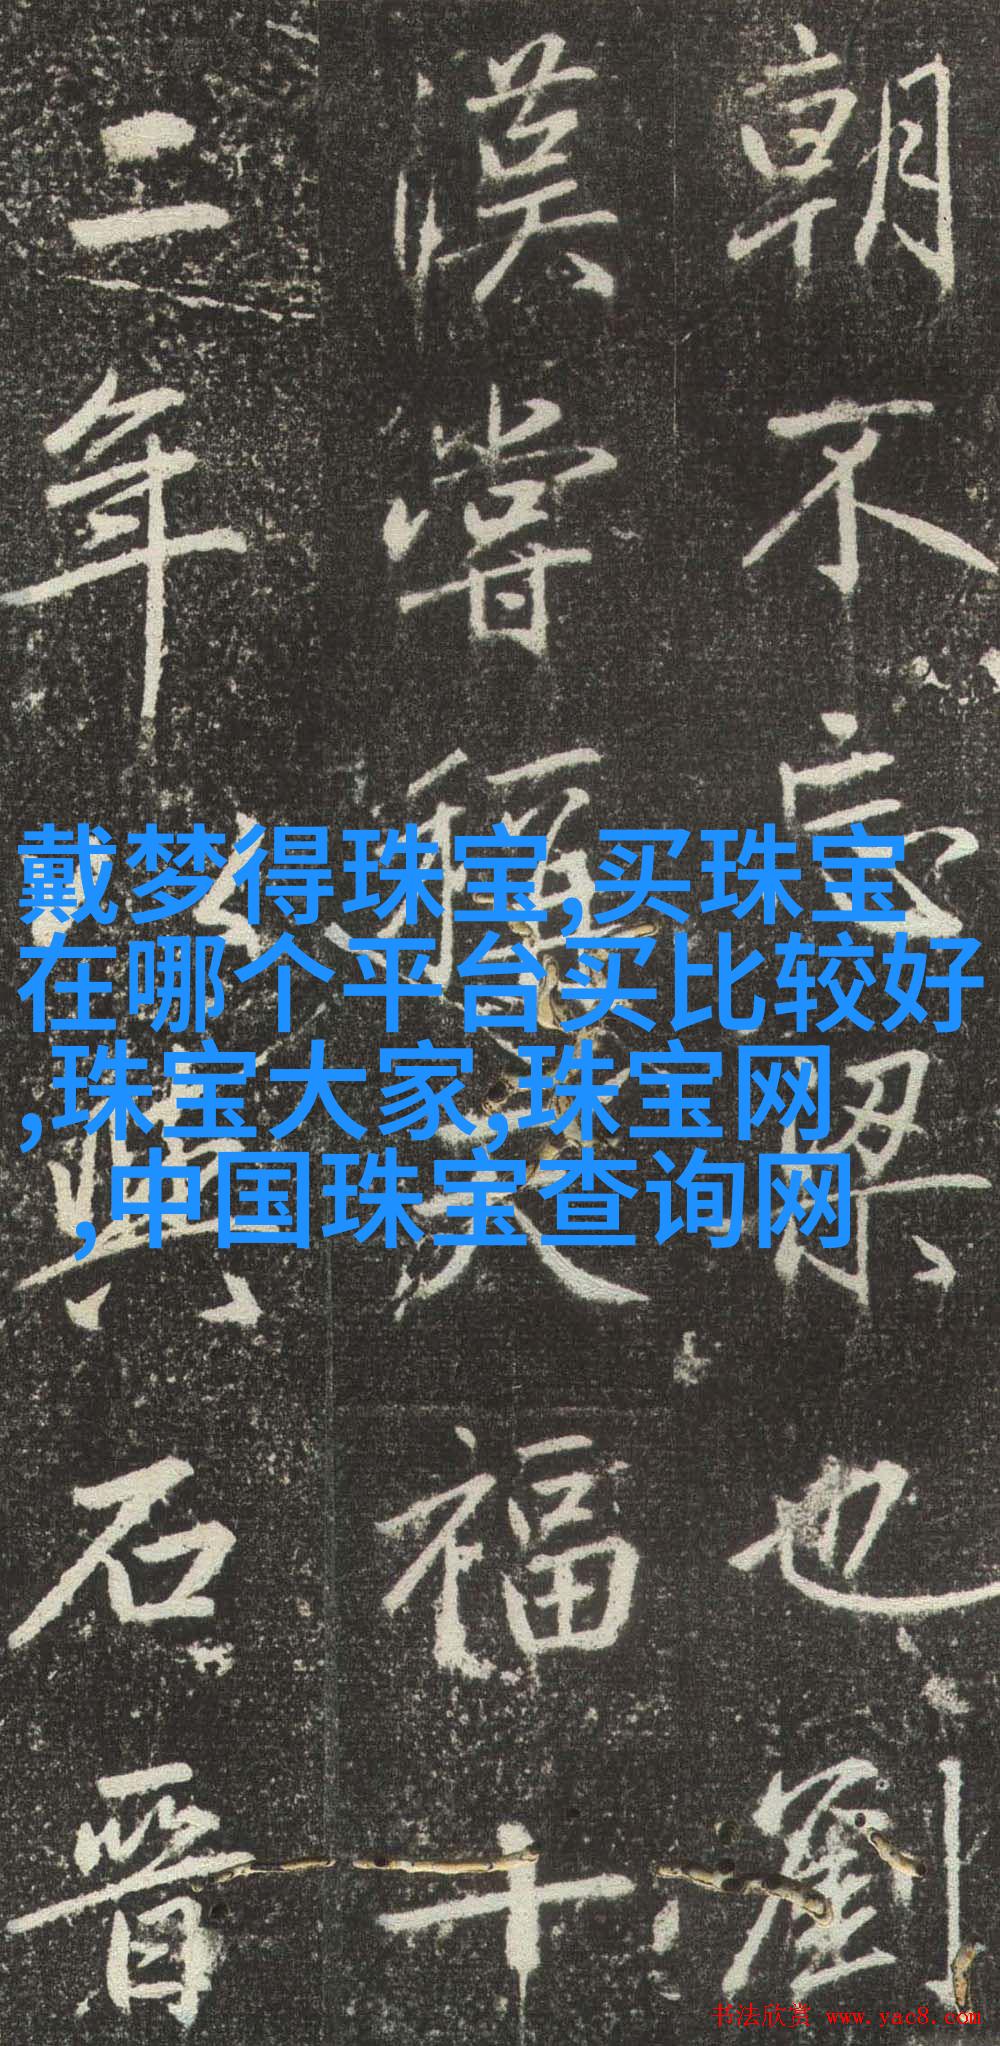 朝不忘梁也劉
漢嘗稱天福十
二年與石晉
戴梦得珠宝,买珠宝
在哪个平台买比较好
,珠宝大家,珠宝网
,中国珠宝查询网
书法欣赏 www.yac8.com